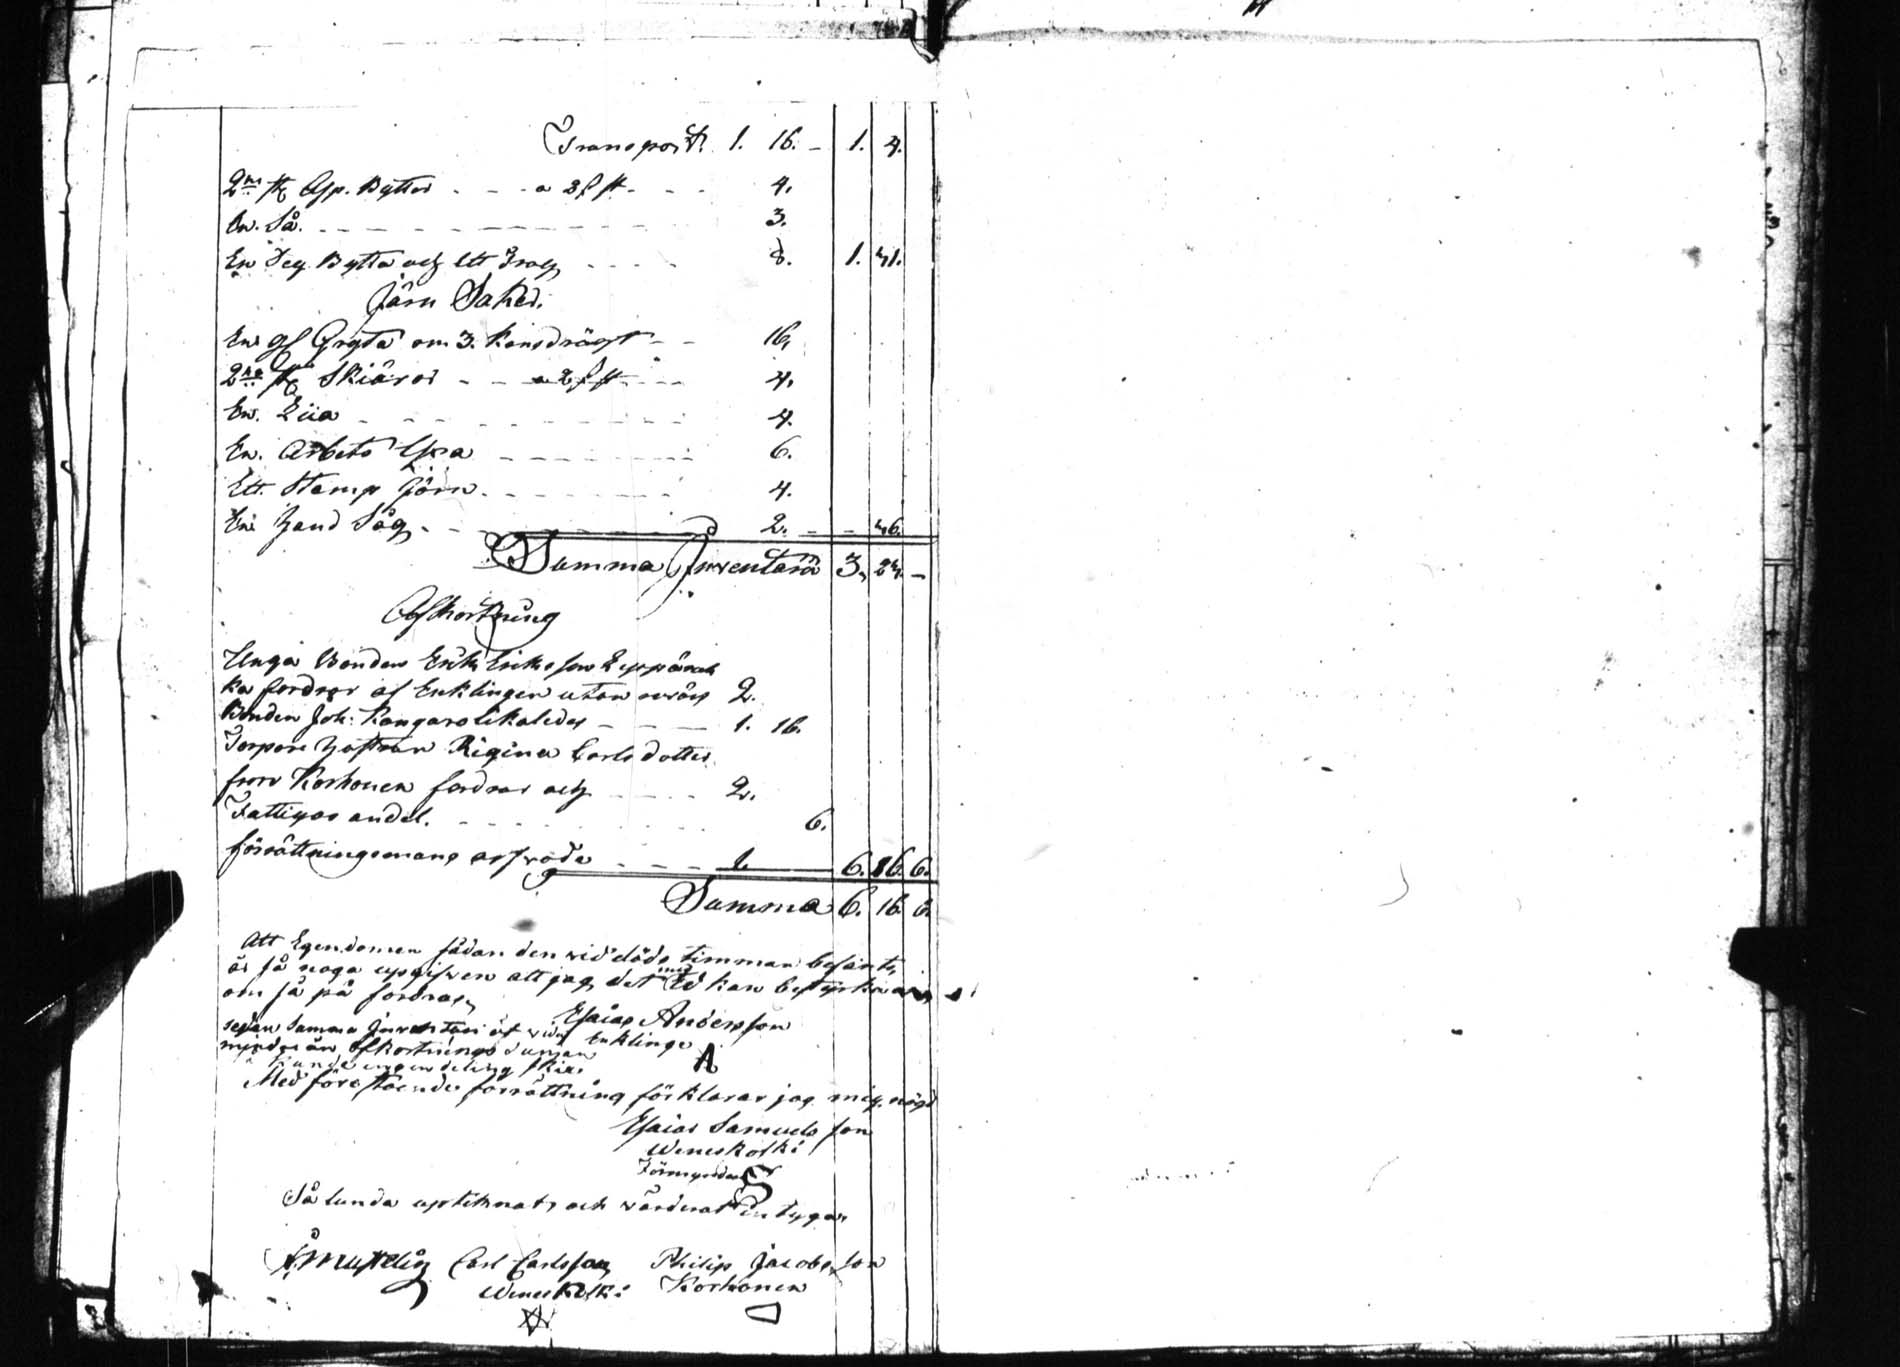 Transport. 1. 16. - 1. 4.
2ne st. Asp. Byttor - - - a 2 s st. - - - 4.
En. Så. - - - 3.
En Deg Bytta och ett Tråg - - - 8. 1. 41.
Järn Saker.
En gl Gryta om 3. Kansdrägt - - 16.
2ne st. Skiäror - - a 2 s st. - - 4.
En. Lia - - - 4.
En. Arbets Yxa - - - 6.
Ett. Stamp Järn - - - 4.
En Hand Såg - - - 2. - - 46.
Summa Inventarii 3. 24. -
Afkortning
Unga Bonden Erik Eriksson
ka fordrar af Enklingen utan 2.
Bonden Joh: Kangas likaledes - - - 1. 16.
Torpare Hustrun Regina Carlsdotter
från Korhonen fordrar och - - - 2.
Fattigas andel. - - - 6.
förrättningsmans arfvode - - - 1. 6. 16. 6.
Summa 6. 16. 6.
Att Egendomen sådan den vid döds timman befants
är så noga upgifven att jag det med Ed kan bestyrka
om så på fordras,
Esaias Andersson
Enklinge
sedan Samma Inventarii är
mindre än afkortnings Summan
kunde ingen delning ske.
A
Med förestående förrättning förklarar jag mig nögd
Esaias Samuelsson
Weneskoski
Förmyndare
Så lunda upteknat, och värderat betyga,
Carl Carlsson Philip Jacobsson
Weneskoski Korhonen